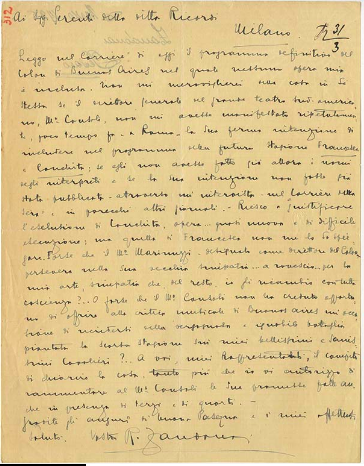 312
Ai Sigg. Gerenti della ditta Ricordi
Milano 31/3
Leggo nel Corriere di oggi il programma definitivo del
Colon di Buenos Aires nel quale nessuna opera mia
è inclusa. Non mi meraviglierei della cosa in sè
stessa se il direttore generale del grande teatro sud-america-
no, Mº Cantoli, non mi avesse manifestato ripetutamen-
te, poco tempo fa a Roma, la sua ferma intenzione di
includere nel programma della futura stagione Francesca
e Conchita; se egli non avesse fatto già allora i nomi
degli interpreti e se la sua intenzione non fosse già
stata pubblicata attraverso mie interviste nel Corriere della
Sera e in parecchi altri giornali. Riesco a giustificare
l'esclusione di Conchita, opera quasi nuova e di difficile
esecuzione; ma quella di Francesca non me la so spie-
gare. Forse che il Mº Marinuzzi, designato come direttore del Colon
persevera nella sua vecchia antipatia per la
mia arte, antipatia che del resto, io gli ricambio con tutta
coscienza?.. O forse che il Mº Cantoli non ha creduto opportu-
no di offrire alla critica musicale di Buenos Aires un'occa-
sione di ricredersi della vergognosa e ignobile battaglia
piantata la scorsa stagione sui miei bellissimi e sanis-
simi Cavalieri?.. A voi, miei Rappresentanti, il compito
di chiarire la cosa tanto più che io vi autorizzo di
rammentare al Mº Cantoli le sue promesse fatte an-
che in presenza di terzi e di quarti.
Gradite gli auguri di buona Pasqua e i miei affettuosi
saluti. Vostro R. Zandonai